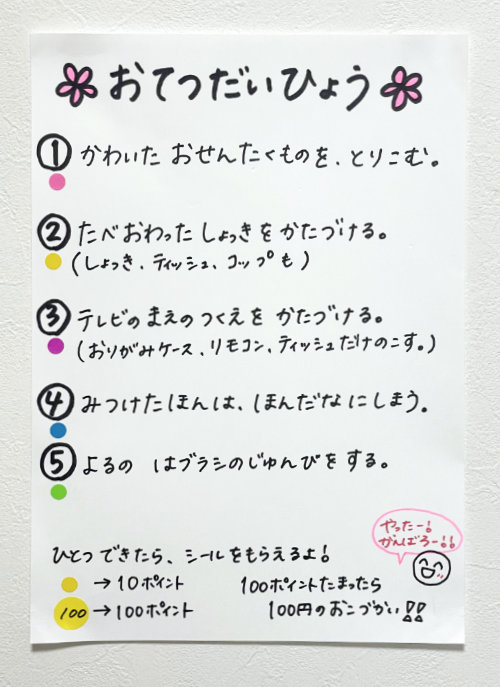 おてつだいひょう
① かわいた おせんたくものを、とりこむ。
② たべおわった しょっきを かたづける。
(しょっき、ティッシュ、コップも)
③ テレビの まえの つくえを かたづける。
(おりがみケース、リモコン、ティッシュだけのこす。)
④ みつけたほんは、ほんだなにしまう。
⑤ よるの はブラシのじゅんびをする。
やったー!
がんばろー!!
ひとつ できたら、シールをもらえるよ!
→10ポイント 100ポイントたまったら
100 →100ポイント 100円のおこづかい!!